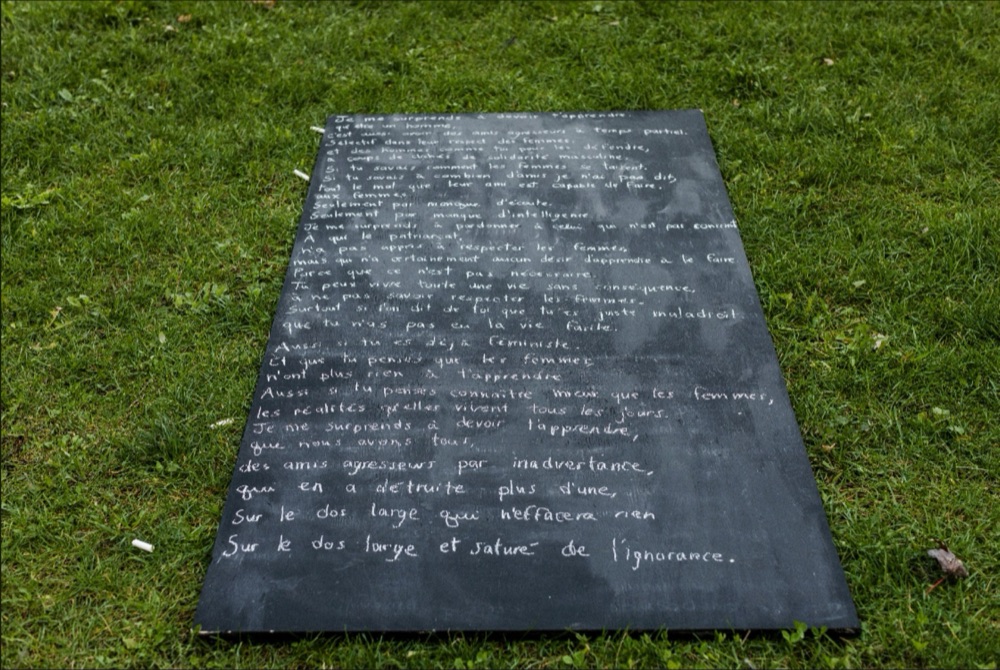 Je me surprends à devoir t'apprendre.
qu'être un homme,
c'est aussi avoir des amis agresseurs à temps partiel.
Sélectif dans leur respect des femmes.
et des hommes comme toi pour les défendre,
à coups de de solidarité masculine.
Si tu savais comment les femmes se taisent.
Si tu savais à combien d'amis je n'ai pas dit,
tout le mal que leur ami est capable de faire.
aux femmes.
Seulement par manque d'écoute.
Seulement par manque d'intelligence.
Je me surprends à pardonner à celui qui n'est pas
À qui le patriarcat,
n'a pas appris à respecter les femmes,
mais qui n'a certainement aucun désir d'apprendre à le faire
Parce que ce n'est pas nécessaire.
Tu peux vivre toute une vie sans conséquence,
à ne pas savoir respecter les femmes.
Surtout si l'on dit de toi que tu es juste maladroit
que tu n'as pas eu la vie facile.
Aussi si tu es déjà féministe
Et que tu penses que les femmes
n'ont plus rien à t'apprendre
Aussi si tu penses connaître mieux que les femmes,
les réalités qu'elles vivent tous les jours.
Je me surprends à devoir t'apprendre,
que nous avons tous,
des amis agresseurs par inadvertance,
qui en a détruite plus d'une,
Sur le dos large qui n'effacera rien
Sur le dos large et saturé de l'ignorance.